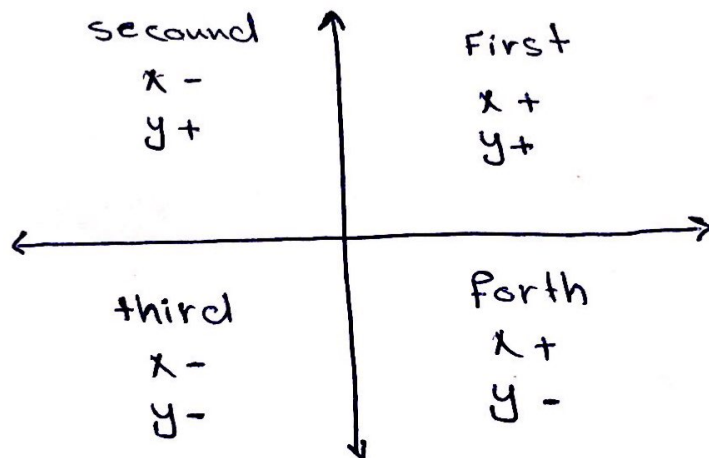 secound
x -
y +
First
x +
y +
third
x -
y -
forth
x +
y -